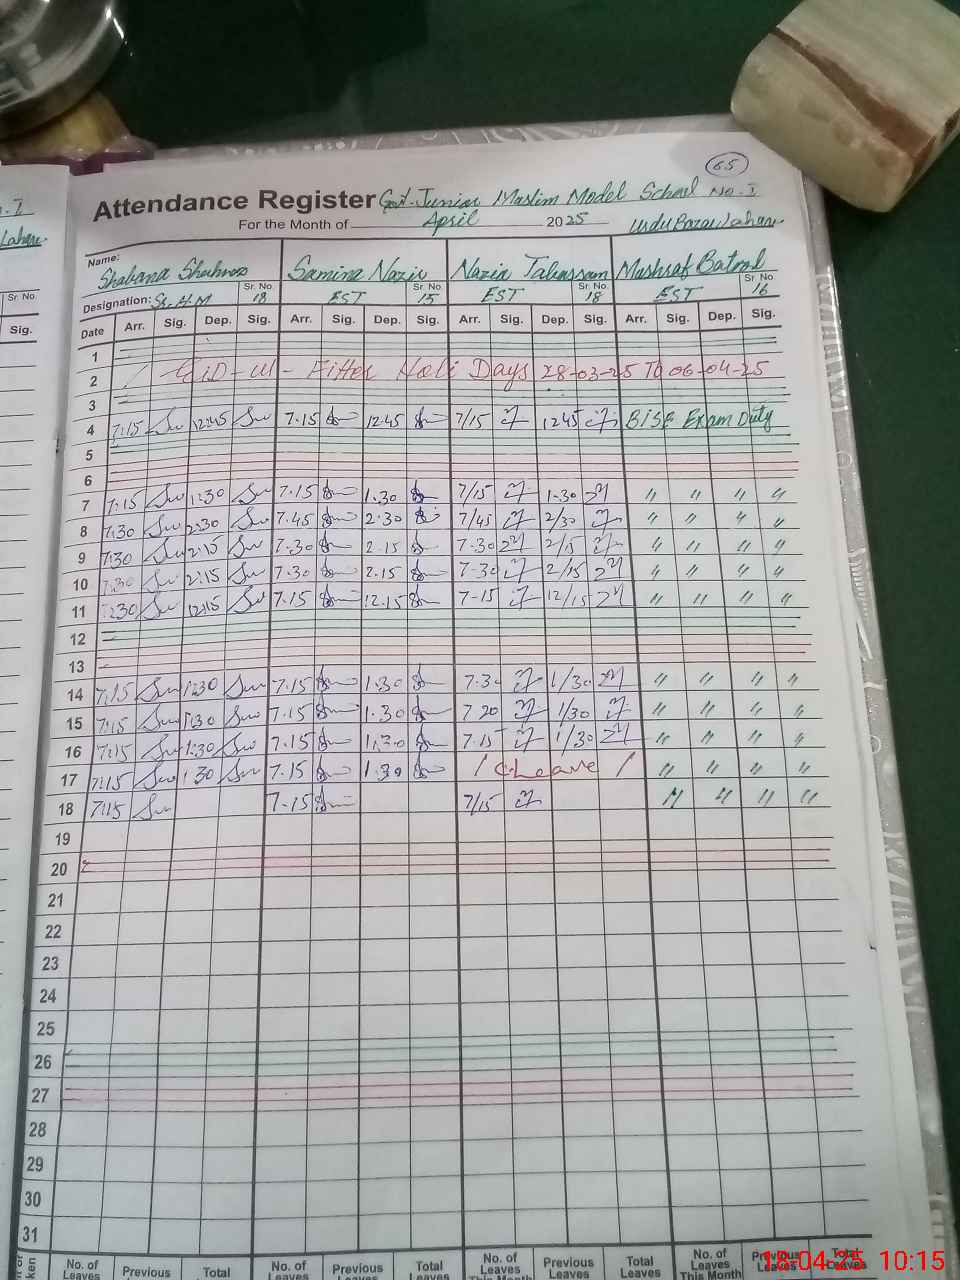 65
Attendance Register Govt. Junior Muslim Model School No-I
For the Month of April 2025 Urdu Bazar Lahore
Name: Shabana Samina Nazir Nazia Tabassam Mashraf Batool
Designation: Sr. H.M Sr. No. 18 EST Sr. No. 15 EST Sr. No. 18 EST Sr. No. 16
Date Arr. Sig. Dep. Sig. Arr. Sig. Dep. Sig. Arr. Sig. Dep. Sig. Arr. Sig. Dep. Sig.
1
2 EiD-ul-Fitter Holi Days 28-03-25 To 06-04-25
3
4 7:15 12:45 7.15 12.45 7/15 1245 BISE Exam Duty
5
6
7 7:15 1:30 7.15 1.30 7/15 1.30 " " " "
8 7:30 2:30 7.45 2.30 7/45 2/30 " " " "
9 7:30 2:15 7.30 2.15 7.30 2/15 " " " "
10 7:30 2:15 7.30 2.15 7-30 2/15 " " " "
11 7:30 12:15 7.15 12.15 7-15 12/15 " " " "
12
13
14 7:15 1:30 7.15 1.30 7.30 1/30 " " " "
15 7:15 1:30 7.15 1.30 7 20 1/30 " " " "
16 7:15 1:30 7.15 1.30 7.15 1/30 " " " "
17 7:15 1:30 7.15 1.30 / C-Leave / " " " "
18 7:15 7-15 7/15 " " " "
19
20
21
22
23
24
25
26
27
28
29
30
31
No. of Leaves Previous Total No. of Leaves Previous Leaves Total Leaves No. of Leaves This Month Previous Leaves Total Leaves No. of Leaves This Month Previous Leaves Total Leaves
18-04-25 10:15
Lahore
Sr. No.
Sig.